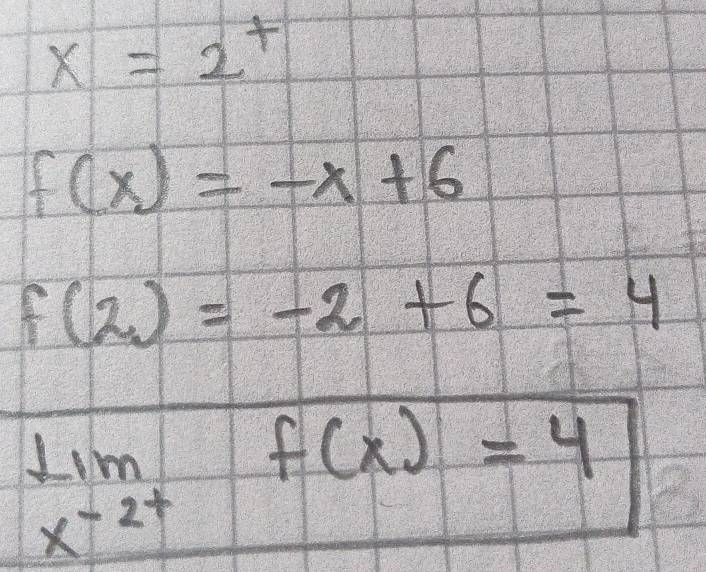 x = 2⁺
f(x) = -x + 6
f(2) = -2 + 6 = 4
Lim f(x) = 4
x - 2⁺